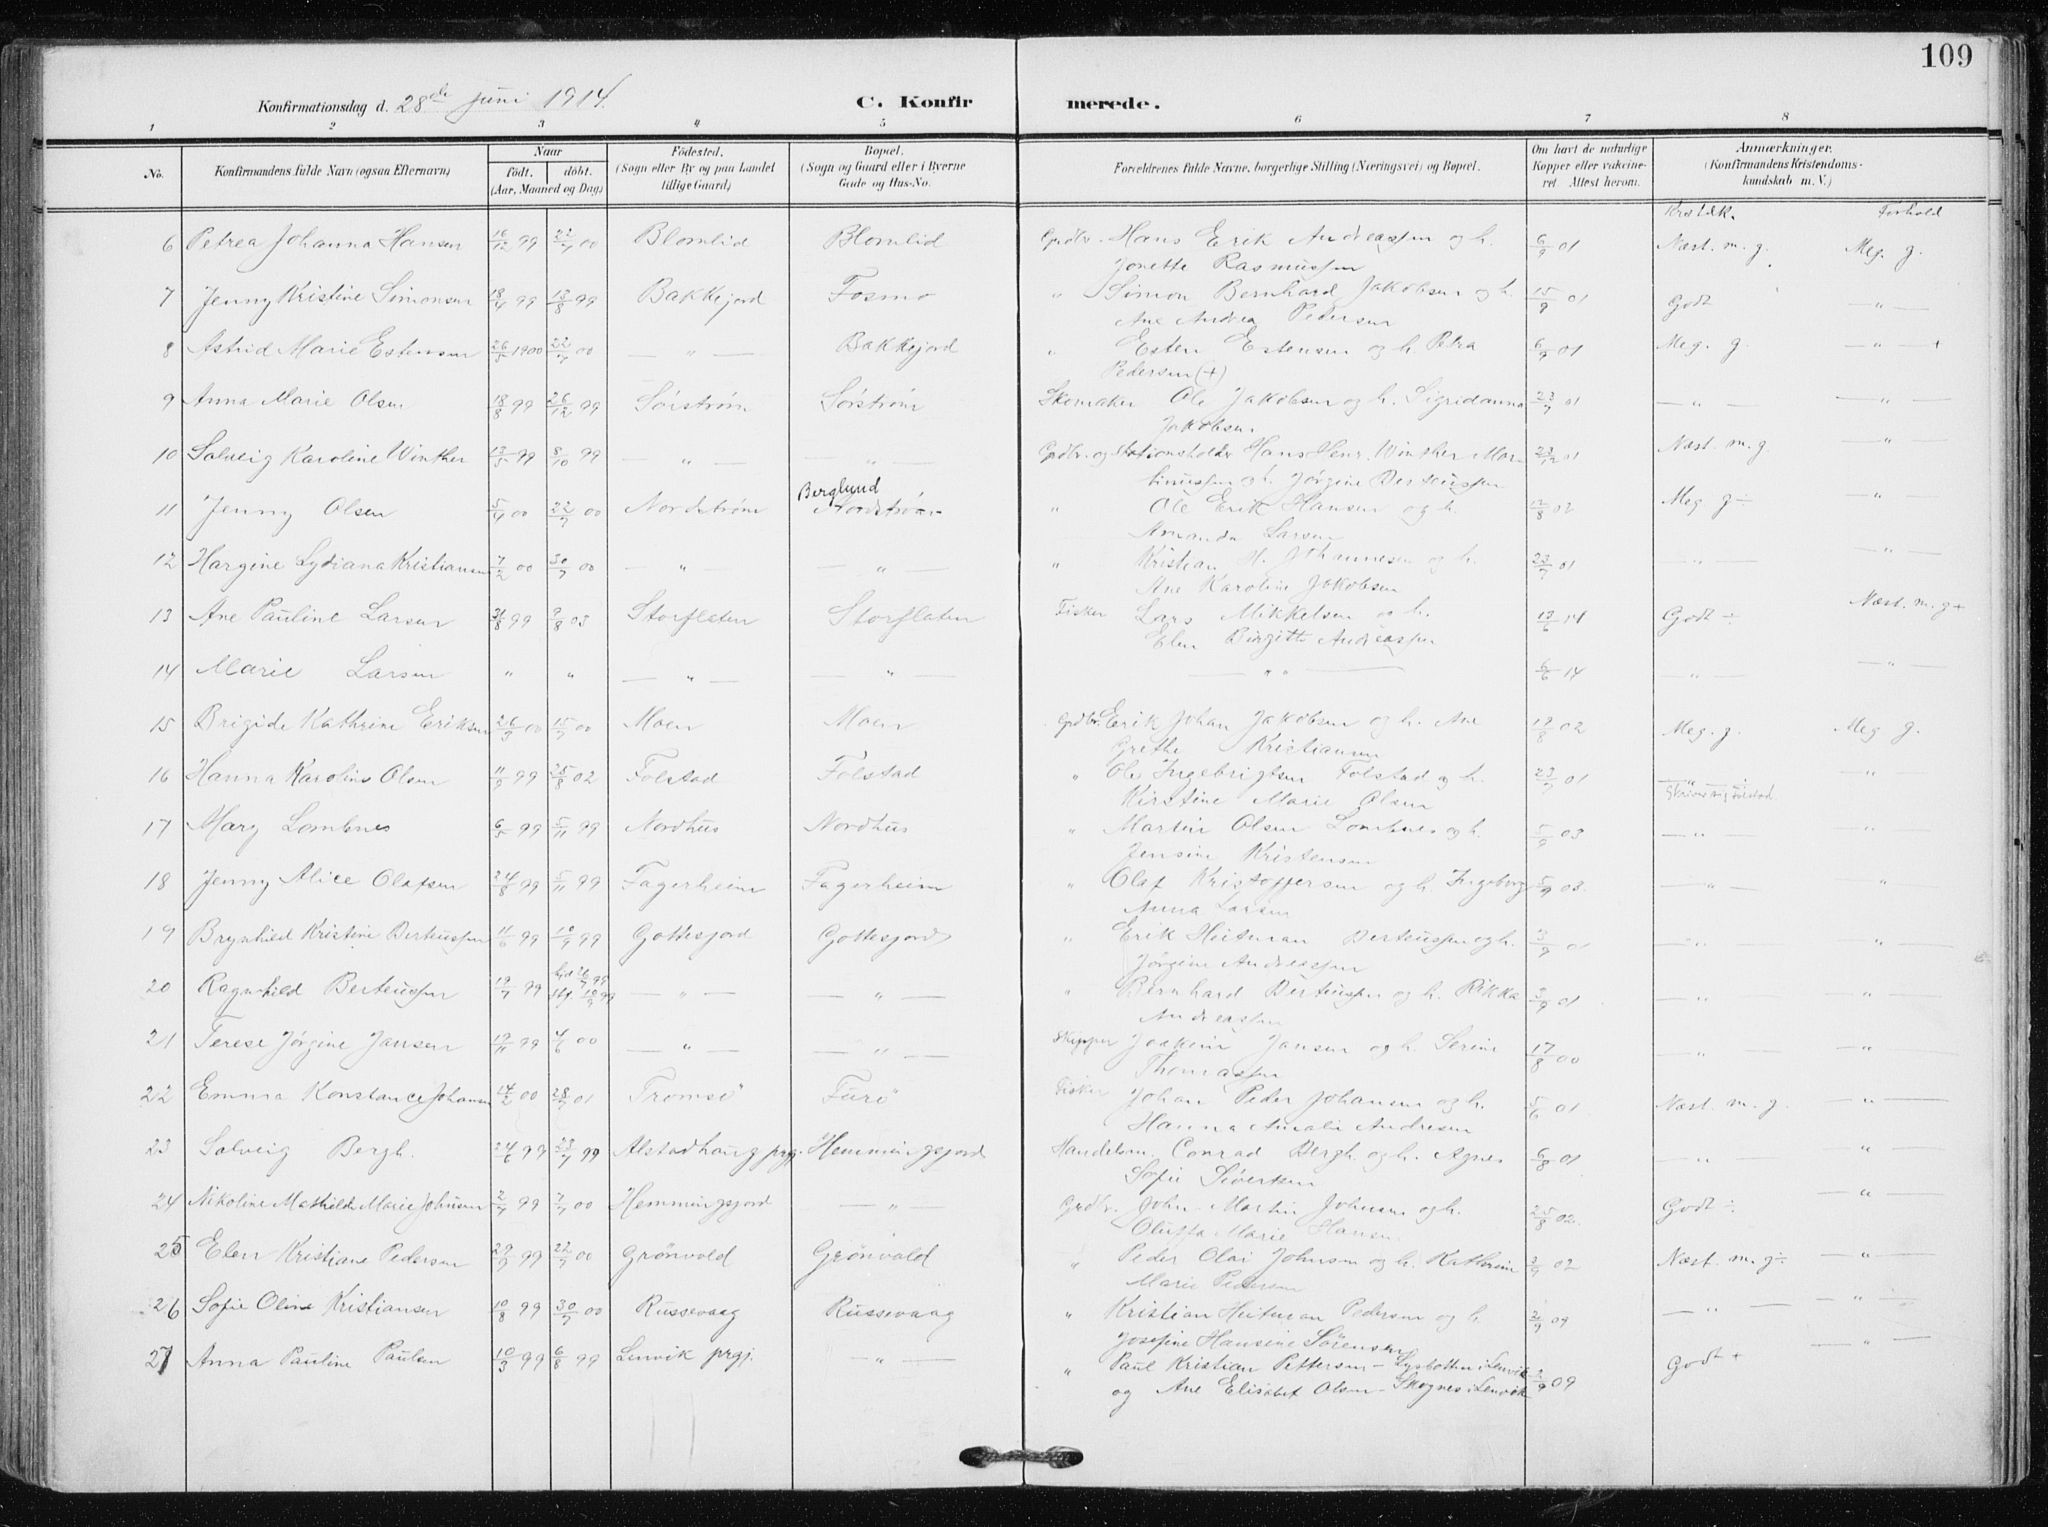 109
Konfirmationsdag d. 28de juni 1914.
C. Konfirmerede.
1 2 3 4 5 6 7 8
No.
Konfirmandens fulde Navn (ogsaa Efternavn)
Naar
født. døbt.
(Aar, Maaned og Dag)
Fødested.
(Sogn eller By og paa Landet
tillige Gaard)
Bopæl.
(Sogn og Gaard eller i Byerne
Gade og Hus-No.
Forældrenes fulde Navne, borgerlige Stilling (Næringsvei) og Bopæl.
Om havt de naturlige
Kopper eller vakcine-
ret Attest herom.
Anmærkninger.
(Konfirmandens Kristendoms-
kundskab m. V.)
Krstdk. Forhold
6 Petrea Johanna Hansen 16/12 99 22/7 00 Blomlid Blomlid Grdbr. Hans Erik Andreassen og h. 6/9 01 Næst. m. g. Meg. g.
Jonette Rasmussen
7 Jenny Kristine Simonsen 18/4 99 13/8 99 Bakkejord Fosmo " Simon Bernhard Jakobsen og h. 15/9 01 Godt — " —
Ane Andrea Pedersen
8 Astrid Marie Estensen 26/5 1900 22/7 00 — " — Bakkejord " Esten Estensen og h. Petra 6/9 01 Meg. g. — " — +
Pedersen (+)
9 Anna Marie Olsen 18/8 99 26/12 99 Sørstrøm Sørstrøm Skomaker Ole Jakobsen og h. Sigridanna 23/7 01 — " — — " —
Jakobsen
10 Solveig Karoline Winther 13/5 99 8/10 99 — " — — " — Grdbr. og Stationsholder Hans Henr. Winther Mar- 23/12 01 Næst. m. g. — " —
tinussen og h. Jørgine Berteussen
11 Jenny Olsen 5/4 00 22/7 00 Nordstrøm Berglund Nordstrøm " Ole Erik Hansen og h. 17/8 02 Meg. g ÷ — " —
Amanda Larsen
12 Hargine Lydiana Kristiansen 7/2 00 30/7 00 — " — — " — " Kristian H. Johannesen og h. 23/7 01 — " — — " —
Ane Karoline Jakobsen
13 Ane Pauline Larsen 31/8 99 9/8 03 Storflaten Storflaten Fisker Lars Mikkelsen og h. 13/6 14 Godt ÷ Næst. m. g +
Elen Birgitte Andreassen
14 Marie Larsen " " — " — — " — — " " — 6/6 14 — " — — " —
15 Brigide Kathrine Eriksen 26/3 00 15/7 00 Moen Moen Grdbr. Erik Johan Jakobsen og h. Ane 19/8 02 Meg. g. Meg. g.
Grethe Kristiansen
16 Hanna Karoline Olsen 11/9 99 25/8 02 Tølstad Tølstad " Ole Ingebrigtsen Tølstad og h. 23/7 01 — " — — " —
Kirstine Marie Olsen Skriver sig Tølstad
17 Mary Lombnes 6/5 99 5/11 99 Nordhus Nordhus " Martin Olsen Lombnes og h. 5/9 03 — " — — " —
Jensine Kristensen
18 Jenny Alice Olafsen 24/8 99 5/11 99 Fagerheim Fagerheim " Olaf Kristoffersen og h. Ingeborg 5/9 03. — " — "
Anna Larsen
19 Brynhild Kristine Berteussen 11/6 99 10/9 99 Gottesjord Gottesjord " Erik Heitman Berteussen og h. 3/9 01 — " — — " —
Jørgine Andreassen
20 Ragnhild Berteussen 19/7 99 hjd 26/7 99 stf. 10/9 99 — " — — " — " Bernhard Berteussen og h. Rikka 3/9 01 — " — — " —
Andreassen
21 Terese Jørgine Jansen 19/11 99 4/6 00 — " — — " — Skipper Joakim Jansen og h. Serine 17/8 00 — " — — " —
Thomassen
22 Emma Konstance Johansen 14/2 00 28/7 01 Tromsö Furö Fisker Johan Peder Johansen og h. 5/6 01 Næst. m. g. — " —
Hanna Amalie Andresen
23 Solveig Bergh. 24/6 99 23/7 99 Alstadhoug prgj. Hemmingsjord Handelsm. Conrad Bergh. og h. Agnes 6/8 01 — " — — " —
Sofie Sivertsen
24 Nikoline Mathilde Marie Johnsen 2/7 99 7/7 00 Hemmingsjord — " — Grdbr. John Martin Johnsen og h. 25/8 02. Godt ÷ — " —
Olufta Marie Hansen
25 Elen Kristiane Pedersen 29/9 99 22/7 00 Grönvold Grönvold " Peder Olai Johnsen og h. Kathrine 3/9 02 Næst. m. g ÷ — " —
Marie Pedersen
26 Sofie Oline Kristiansen 10/8 99 30/7 00 Russevaag Russevaag " Kristian Heitman Pedersen og h. 2/9 09 — " — — " —
Josefine Hansine Sörensen
27 Anna Pauline Paulsen 10/3 99 6/8 99 Lenvik prgj. — " — " Paul Kristian Pettersen – Lysbotten i Lenvik 2/9 09 Godt + — " —
og Ane Elisabet Olsen – Skognes i Lenvik